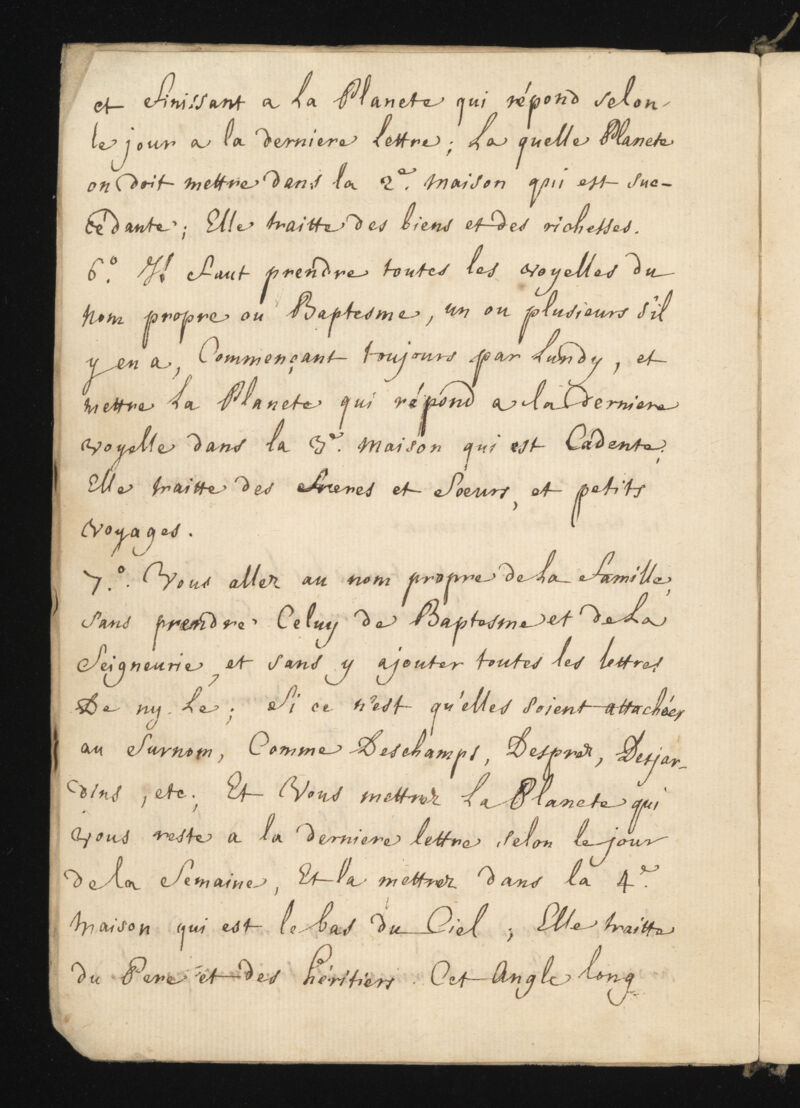 et finissant a la Planete qui répond selon
le jour a la derniere lettre; La quelle Planete
on doit mettre dans la 2e. maison qui est suc-
cédante; Elle traitte des biens et des richesses.
6o. Il faut prendre toutes les voyelles du
nom propre ou Baptesme, un ou plusieurs s'il
y en a, Commençant toujours par Lundy, et
mettre La Planete qui répond a la derniere
voyelle dans la 3e. maison qui est Cadente;
Elle traitte des freres et Soeurs, et petits
voyages.
7o. Vous allez au nom propre de la famille,
sans prendre Celuy de Baptesme et de la
Seigneurie, et sans y ajouter toutes les lettres
De ny Le; Si ce n'est qu'elles soient attachéez
au Surnom, Comme Deschamps, Desprez, Desjar-
dins, etc; Et Vous mettrez La Planete qui
vous reste a la derniere lettre selon le jour
de la Semaine, Et la mettrez dans la 4e.
maison qui est le bas du Ciel; Elle traitte
du Pere et des héritiers. Cet Angle long